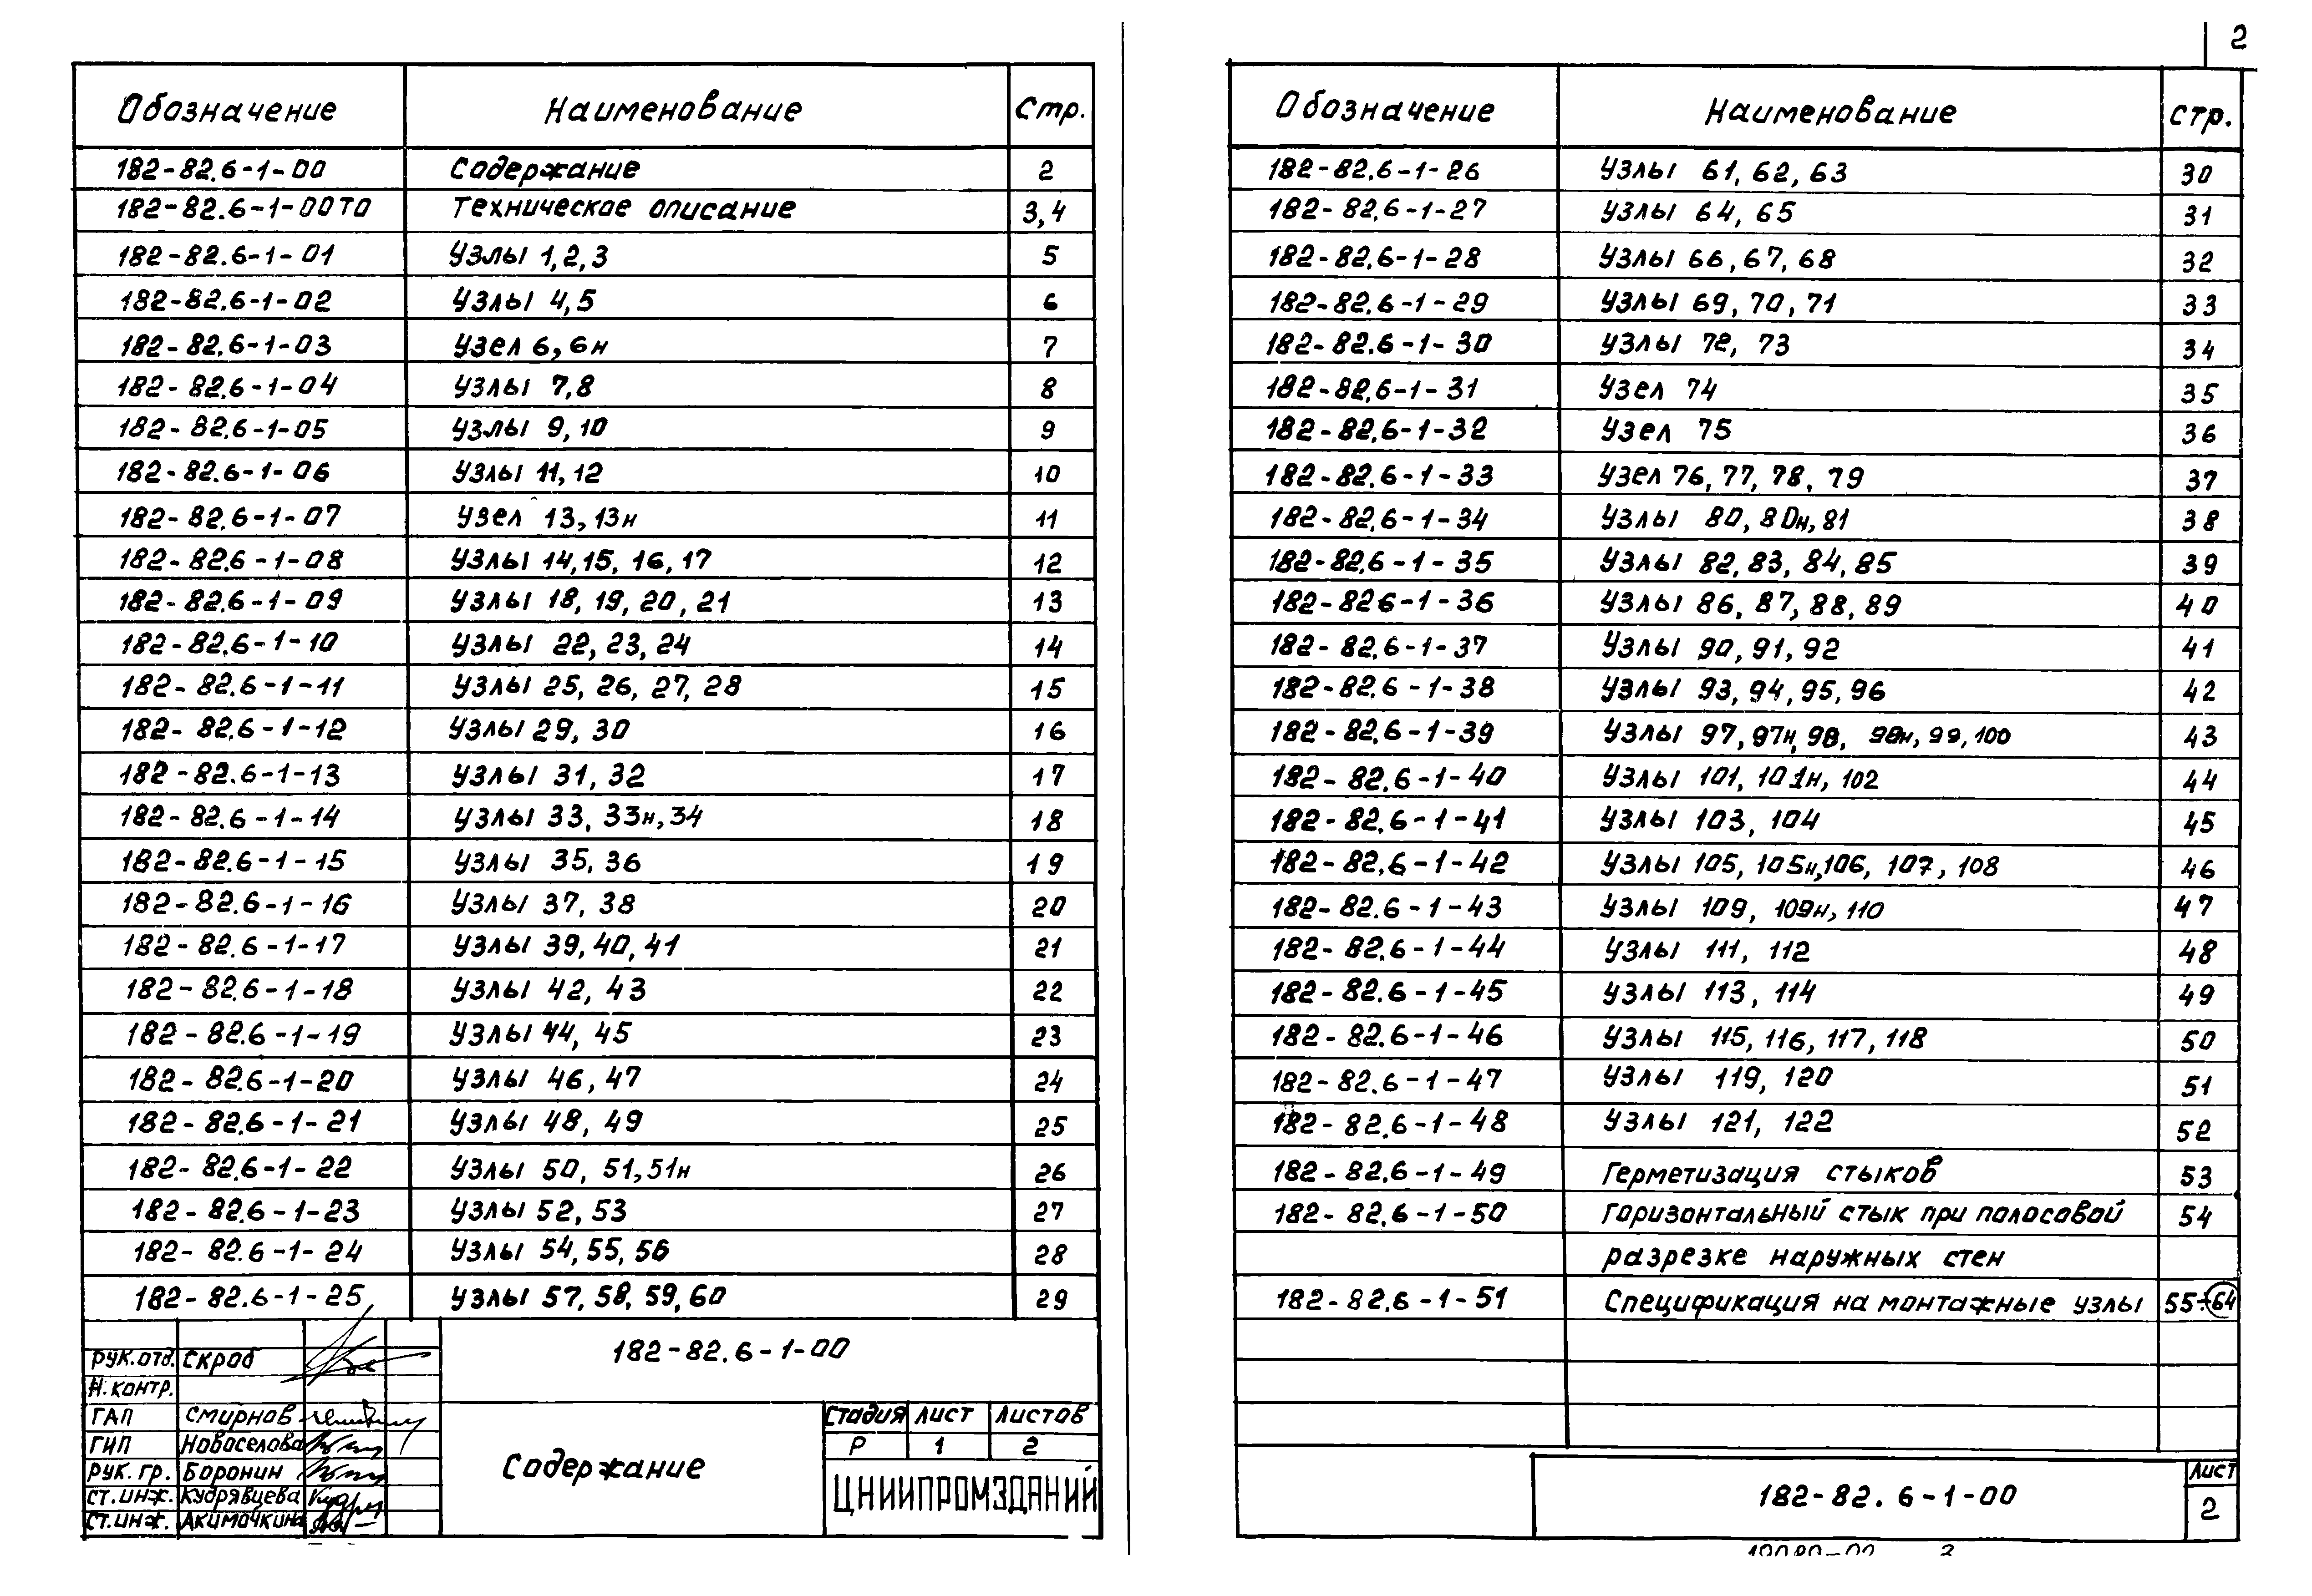 2
Обозначение Наименование Стр.
182-82.6-1-00 Содержание 2
182-82.6-1-00ТО Техническое описание 3,4
182-82.6-1-01 Узлы 1,2,3 5
182-82.6-1-02 Узлы 4,5 6
182-82.6-1-03 Узел 6,6н 7
182-82.6-1-04 Узлы 7,8 8
182-82.6-1-05 Узлы 9,10 9
182-82.6-1-06 Узлы 11,12 10
182-82.6-1-07 Узел 13,13н 11
182-82.6-1-08 Узлы 14,15,16,17 12
182-82.6-1-09 Узлы 18,19,20,21 13
182-82.6-1-10 Узлы 22,23,24 14
182-82.6-1-11 Узлы 25,26,27,28 15
182-82.6-1-12 Узлы 29,30 16
182-82.6-1-13 Узлы 31,32 17
182-82.6-1-14 Узлы 33,33н,34 18
182-82.6-1-15 Узлы 35,36 19
182-82.6-1-16 Узлы 37,38 20
182-82.6-1-17 Узлы 39,40,41 21
182-82.6-1-18 Узлы 42,43 22
182-82.6-1-19 Узлы 44,45 23
182-82.6-1-20 Узлы 46,47 24
182-82.6-1-21 Узлы 48,49 25
182-82.6-1-22 Узлы 50,51,51н 26
182-82.6-1-23 Узлы 52,53 27
182-82.6-1-24 Узлы 54,55,56 28
182-82.6-1-25 Узлы 57,58,59,60 29
182-82.6-1-00
Рук.отд. Скроб
Н.контр.
ГАП Смирнов
ГИП Новоселова
Рук.гр. Воронин
Ст.инж. Кудрявцева
Ст.инж. Акимочкина
Содержание
Стадия Лист Листов
Р 1 2
ЦНИИПРОМЗДАНИЙ
Обозначение Наименование Стр.
182-82.6-1-26 Узлы 61,62,63 30
182-82.6-1-27 Узлы 64,65 31
182-82.6-1-28 Узлы 66,67,68 32
182-82.6-1-29 Узлы 69,70,71 33
182-82.6-1-30 Узлы 72,73 34
182-82.6-1-31 Узел 74 35
182-82.6-1-32 Узел 75 36
182-82.6-1-33 Узел 76,77,78,79 37
182-82.6-1-34 Узлы 80,80н,81 38
182-82.6-1-35 Узлы 82,83,84,85 39
182-826-1-36 Узлы 86,87,88,89 40
182-82.6-1-37 Узлы 90,91,92 41
182-82.6-1-38 Узлы 93,94,95,96 42
182-82.6-1-39 Узлы 97,97н,98,98н,99,100 43
182-82.6-1-40 Узлы 101,101н,102 44
182-82.6-1-41 Узлы 103,104 45
182-82.6-1-42 Узлы 105,105н,106,107,108 46
182-82.6-1-43 Узлы 109,109н,110 47
182-82.6-1-44 Узлы 111,112 48
182-82.6-1-45 Узлы 113,114 49
182-82.6-1-46 Узлы 115,116,117,118 50
182-82.6-1-47 Узлы 119,120 51
182-82.6-1-48 Узлы 121,122 52
182-82.6-1-49 Герметизация стыков 53
182-82.6-1-50 Горизонтальный стык при полосовой 54
разрезке наружных стен
182-82.6-1-51 Спецификация на монтажные узлы 55÷64
182-82.6-1-00
Лист
2